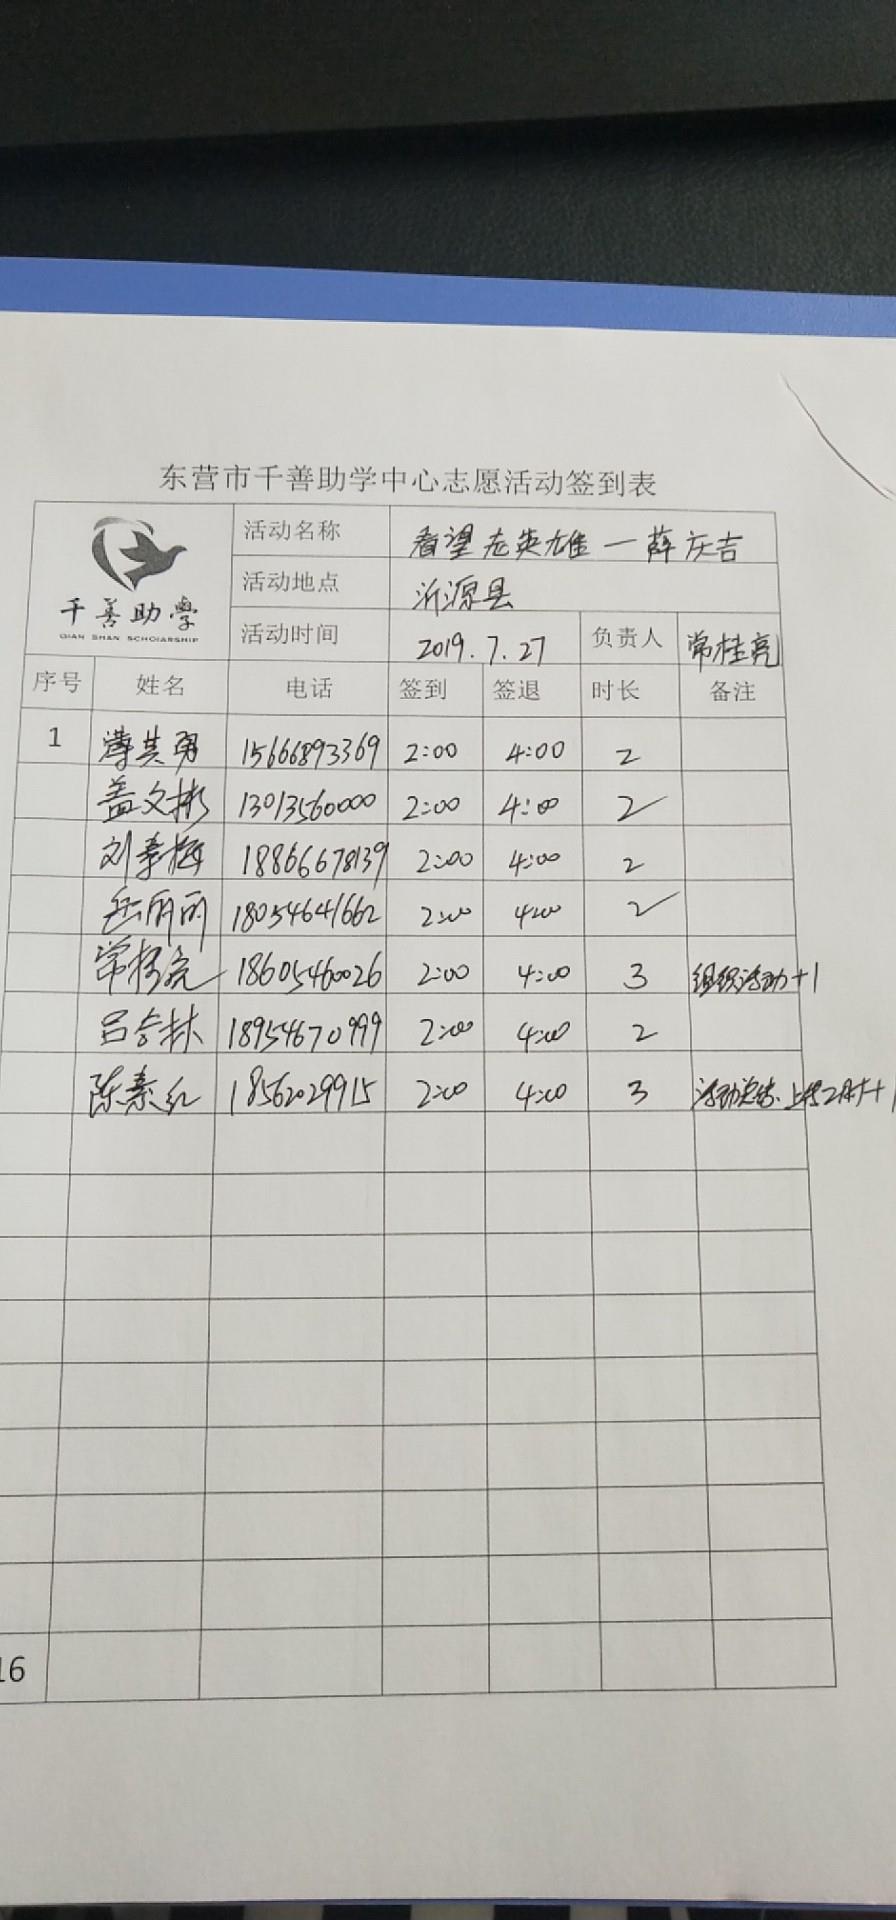 东营市千善助学中心志愿活动签到表
千善助學
QIAN SHAN SCHOIARSHIP
活动名称 看望老英雄—薛庆吉
活动地点 沂源县
活动时间 2019.7.27 负责人 常桂亮
序号 姓名 电话 签到 签退 时长 备注
1 薄其勇 15666893369 2:00 4:00 2
盖文彬 13013560000 2:00 4:00 2
刘春梅 18866678139 2:00 4:00 2
岳丽丽 18054641662 2:00 4:00 2
常桂亮 18605460026 2:00 4:00 3 组织活动+1
吕合林 18954670999 2:00 4:00 2
陈素红 18562029915 2:00 4:00 3 活动总结、上传图片+1
16